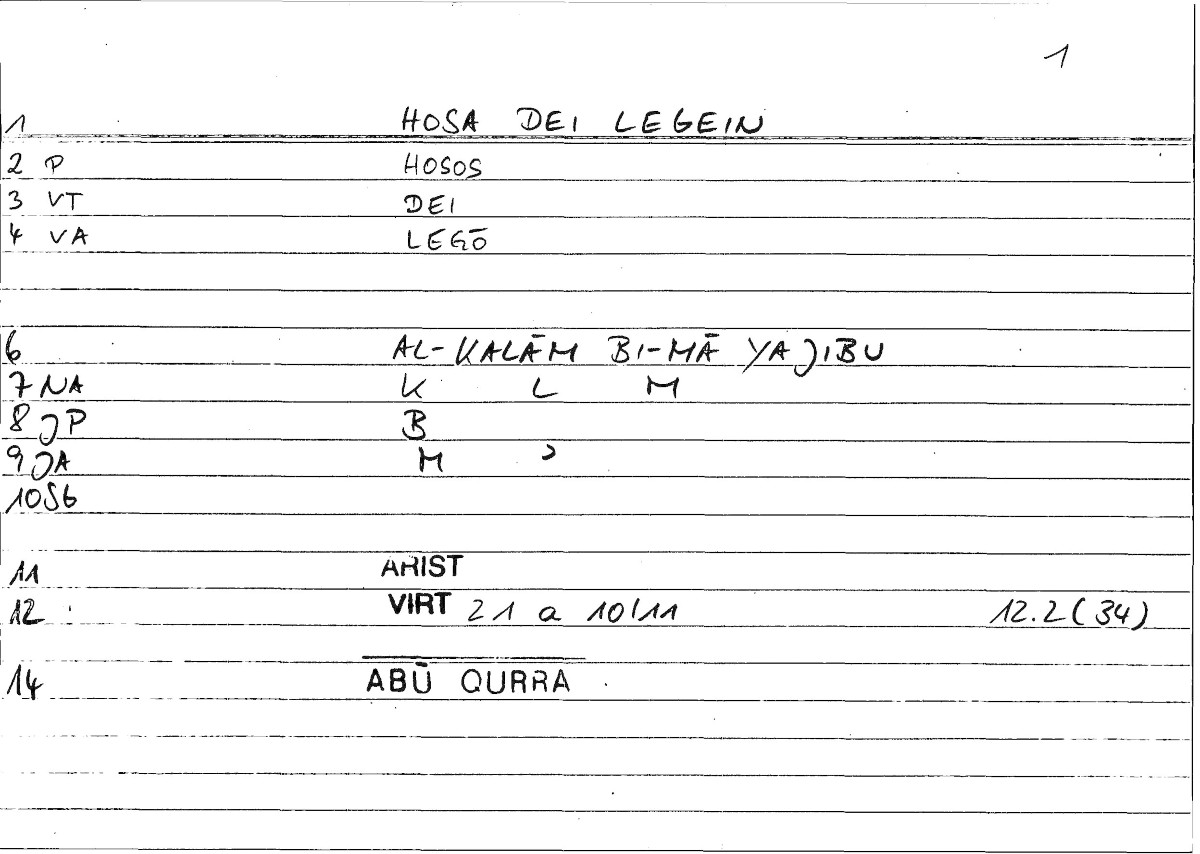 1
1 HOSA DEI LEGEIN
2 P HOSOS
3 VT DEI
4 VA LEGŌ
6 AL-KALĀM BI-MĀ YAJIBU
7 NA K L M
8 JP B
9 JA M ʾ
10 SG
11 ARIST
12 : VIRT 21 a 10/11 12.2 (34)
14 ABŪ QURRA